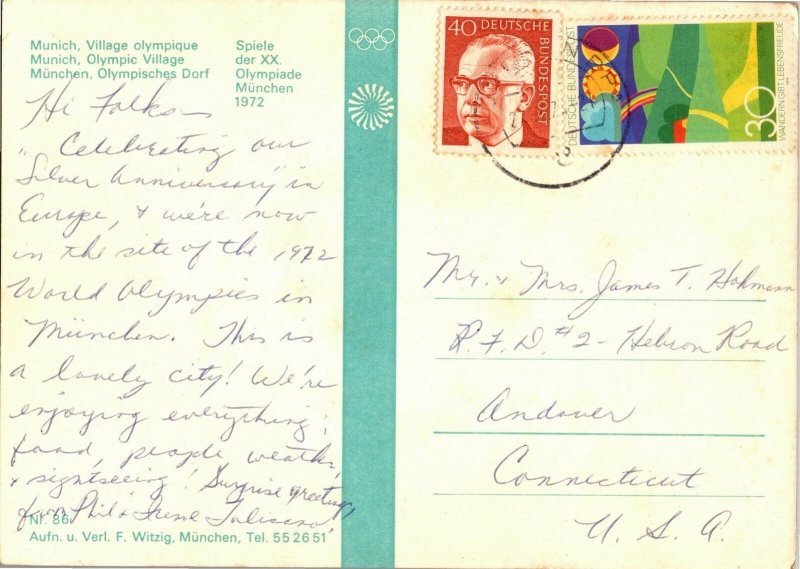 Munich, Village olympique
Munich, Olympic Village
München, Olympisches Dorf
Spiele
der XX.
Olympiade
München
1972
Hi Folks –
"Celebrating our
Silver Anniversary" in
Europe, & we're now
in the site of the 1972
World Olympics in
München. This is
a lovely city! We're
enjoying everything;
food, people weather,
& sightseeing! Surprise greetings
from Phil & Irene
Nr. 86
Aufn. u. Verl. F. Witzig, München, Tel. 55 26 51
40 DEUTSCHE
BUNDESPOST
DEUTSCHE BUNDESPOST
30
WANDERN GIBT LEBENSFREUDE
Mr. & Mrs. James T. Hohmann
R. F. D. #2 - Hebron Road
Andover
Connecticut
U. S. A.